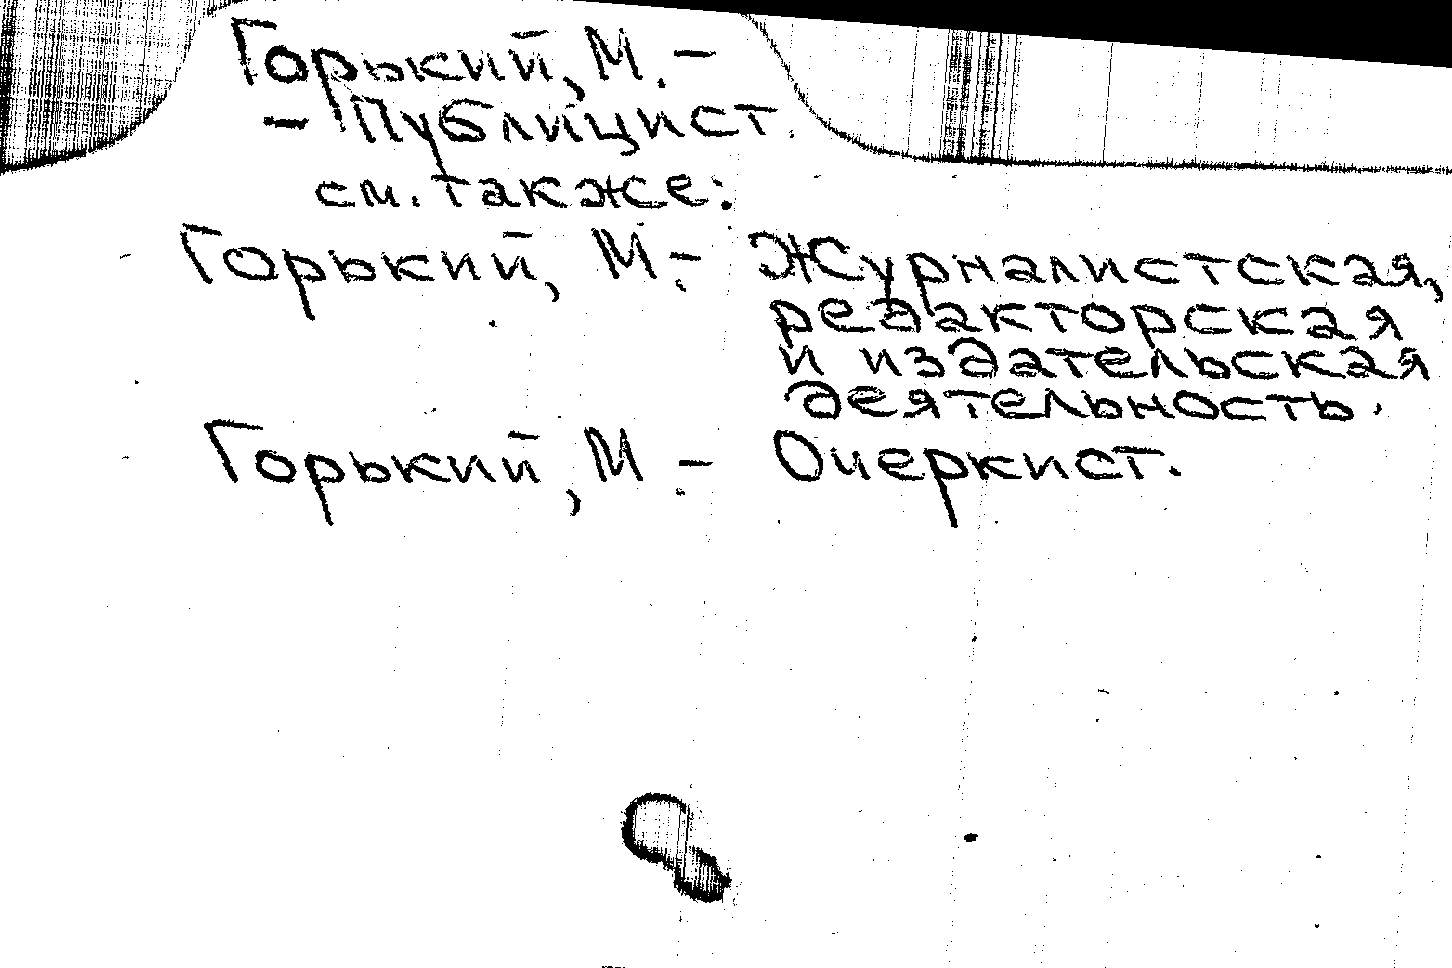 Горький, М. –
– Публицист.
см. также:
Горький, М. – Журналистская,
редакторская
и издательская
деятельность.
Горький, М. – Очеркист.